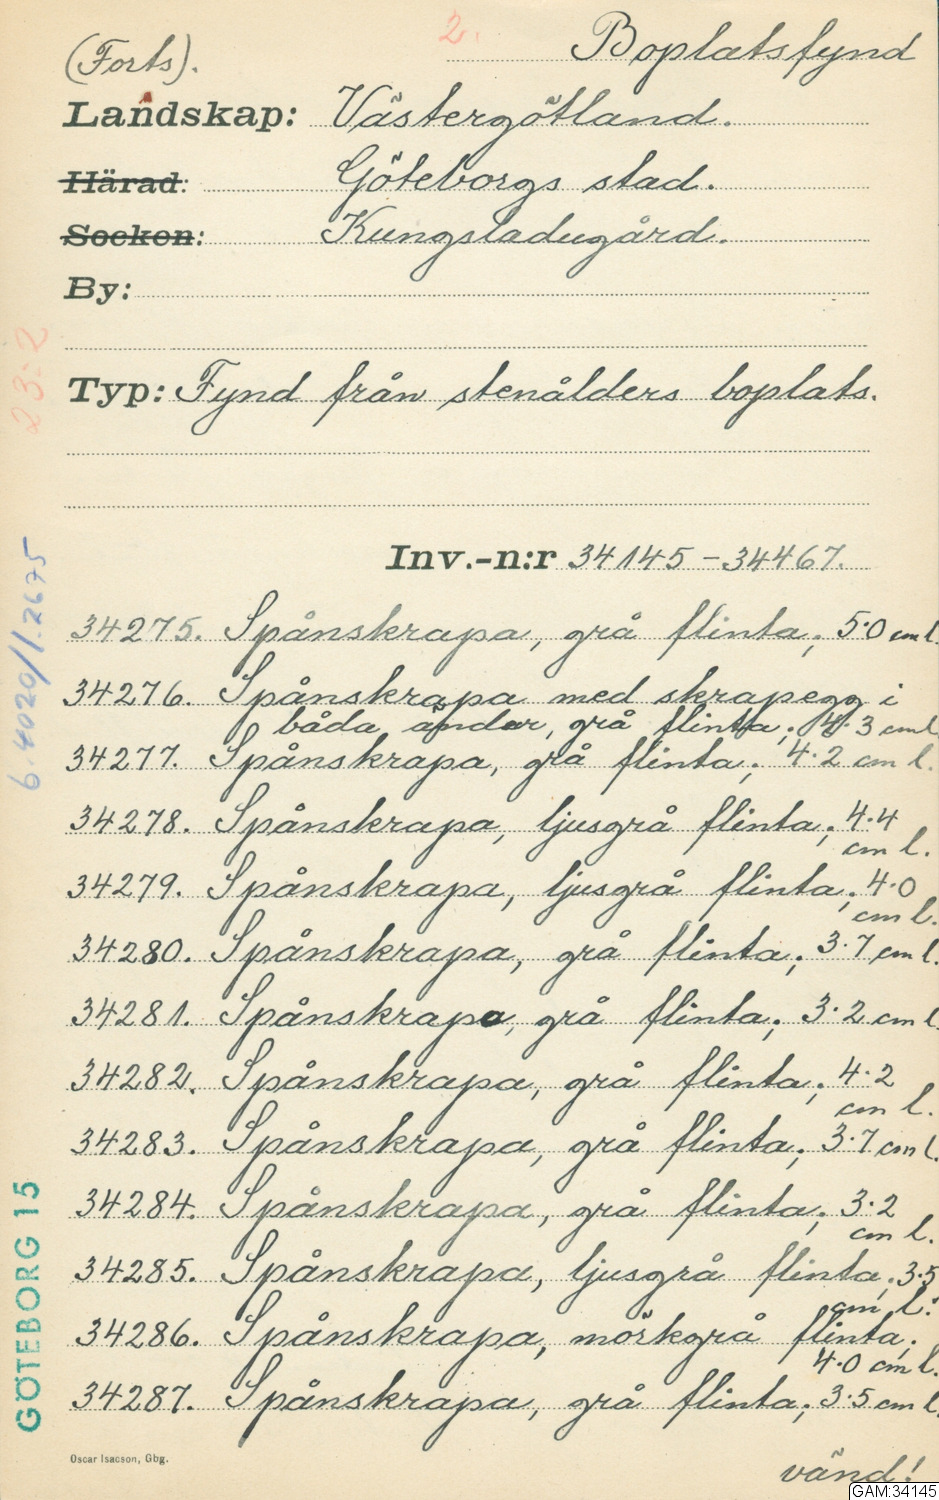 2.
Boplatsfynd
(Forts).
Landskap: Västergötland.
Härad: Göteborgs stad.
Socken: Kungsladugård.
By:
23:2
Typ: Fynd från stenålders boplats.
6.4020/1.2675
Inv.-n:r 34145-34467.
34275. Spånskrapa, grå flinta; 5.0 cm l.
34276. Spånskrapa med skrapegg i
båda ändar, grå flinta; 4.3 cm l.
34277. Spånskrapa, grå flinta; 4.2 cm l.
34278. Spånskrapa, ljusgrå flinta; 4.4
cm l.
34279. Spånskrapa, ljusgrå flinta; 4.0
cm l.
34280. Spånskrapa, grå flinta; 3.7 cm l.
34281. Spånskrapa, grå flinta; 3.2 cm l.
34282. Spånskrapa, grå flinta; 4.2
cm l.
34283. Spånskrapa, grå flinta; 3.7 cm l.
34284. Spånskrapa, grå flinta; 3.2
cm l.
34285. Spånskrapa, ljusgrå flinta; 3.5
cm l.
34286. Spånskrapa, mörkgrå flinta;
4.0 cm l.
34287. Spånskrapa, grå flinta; 3.5 cm l.
GÖTEBORG 15
Oscar Isacson, Gbg.
vänd!
GAM:34145